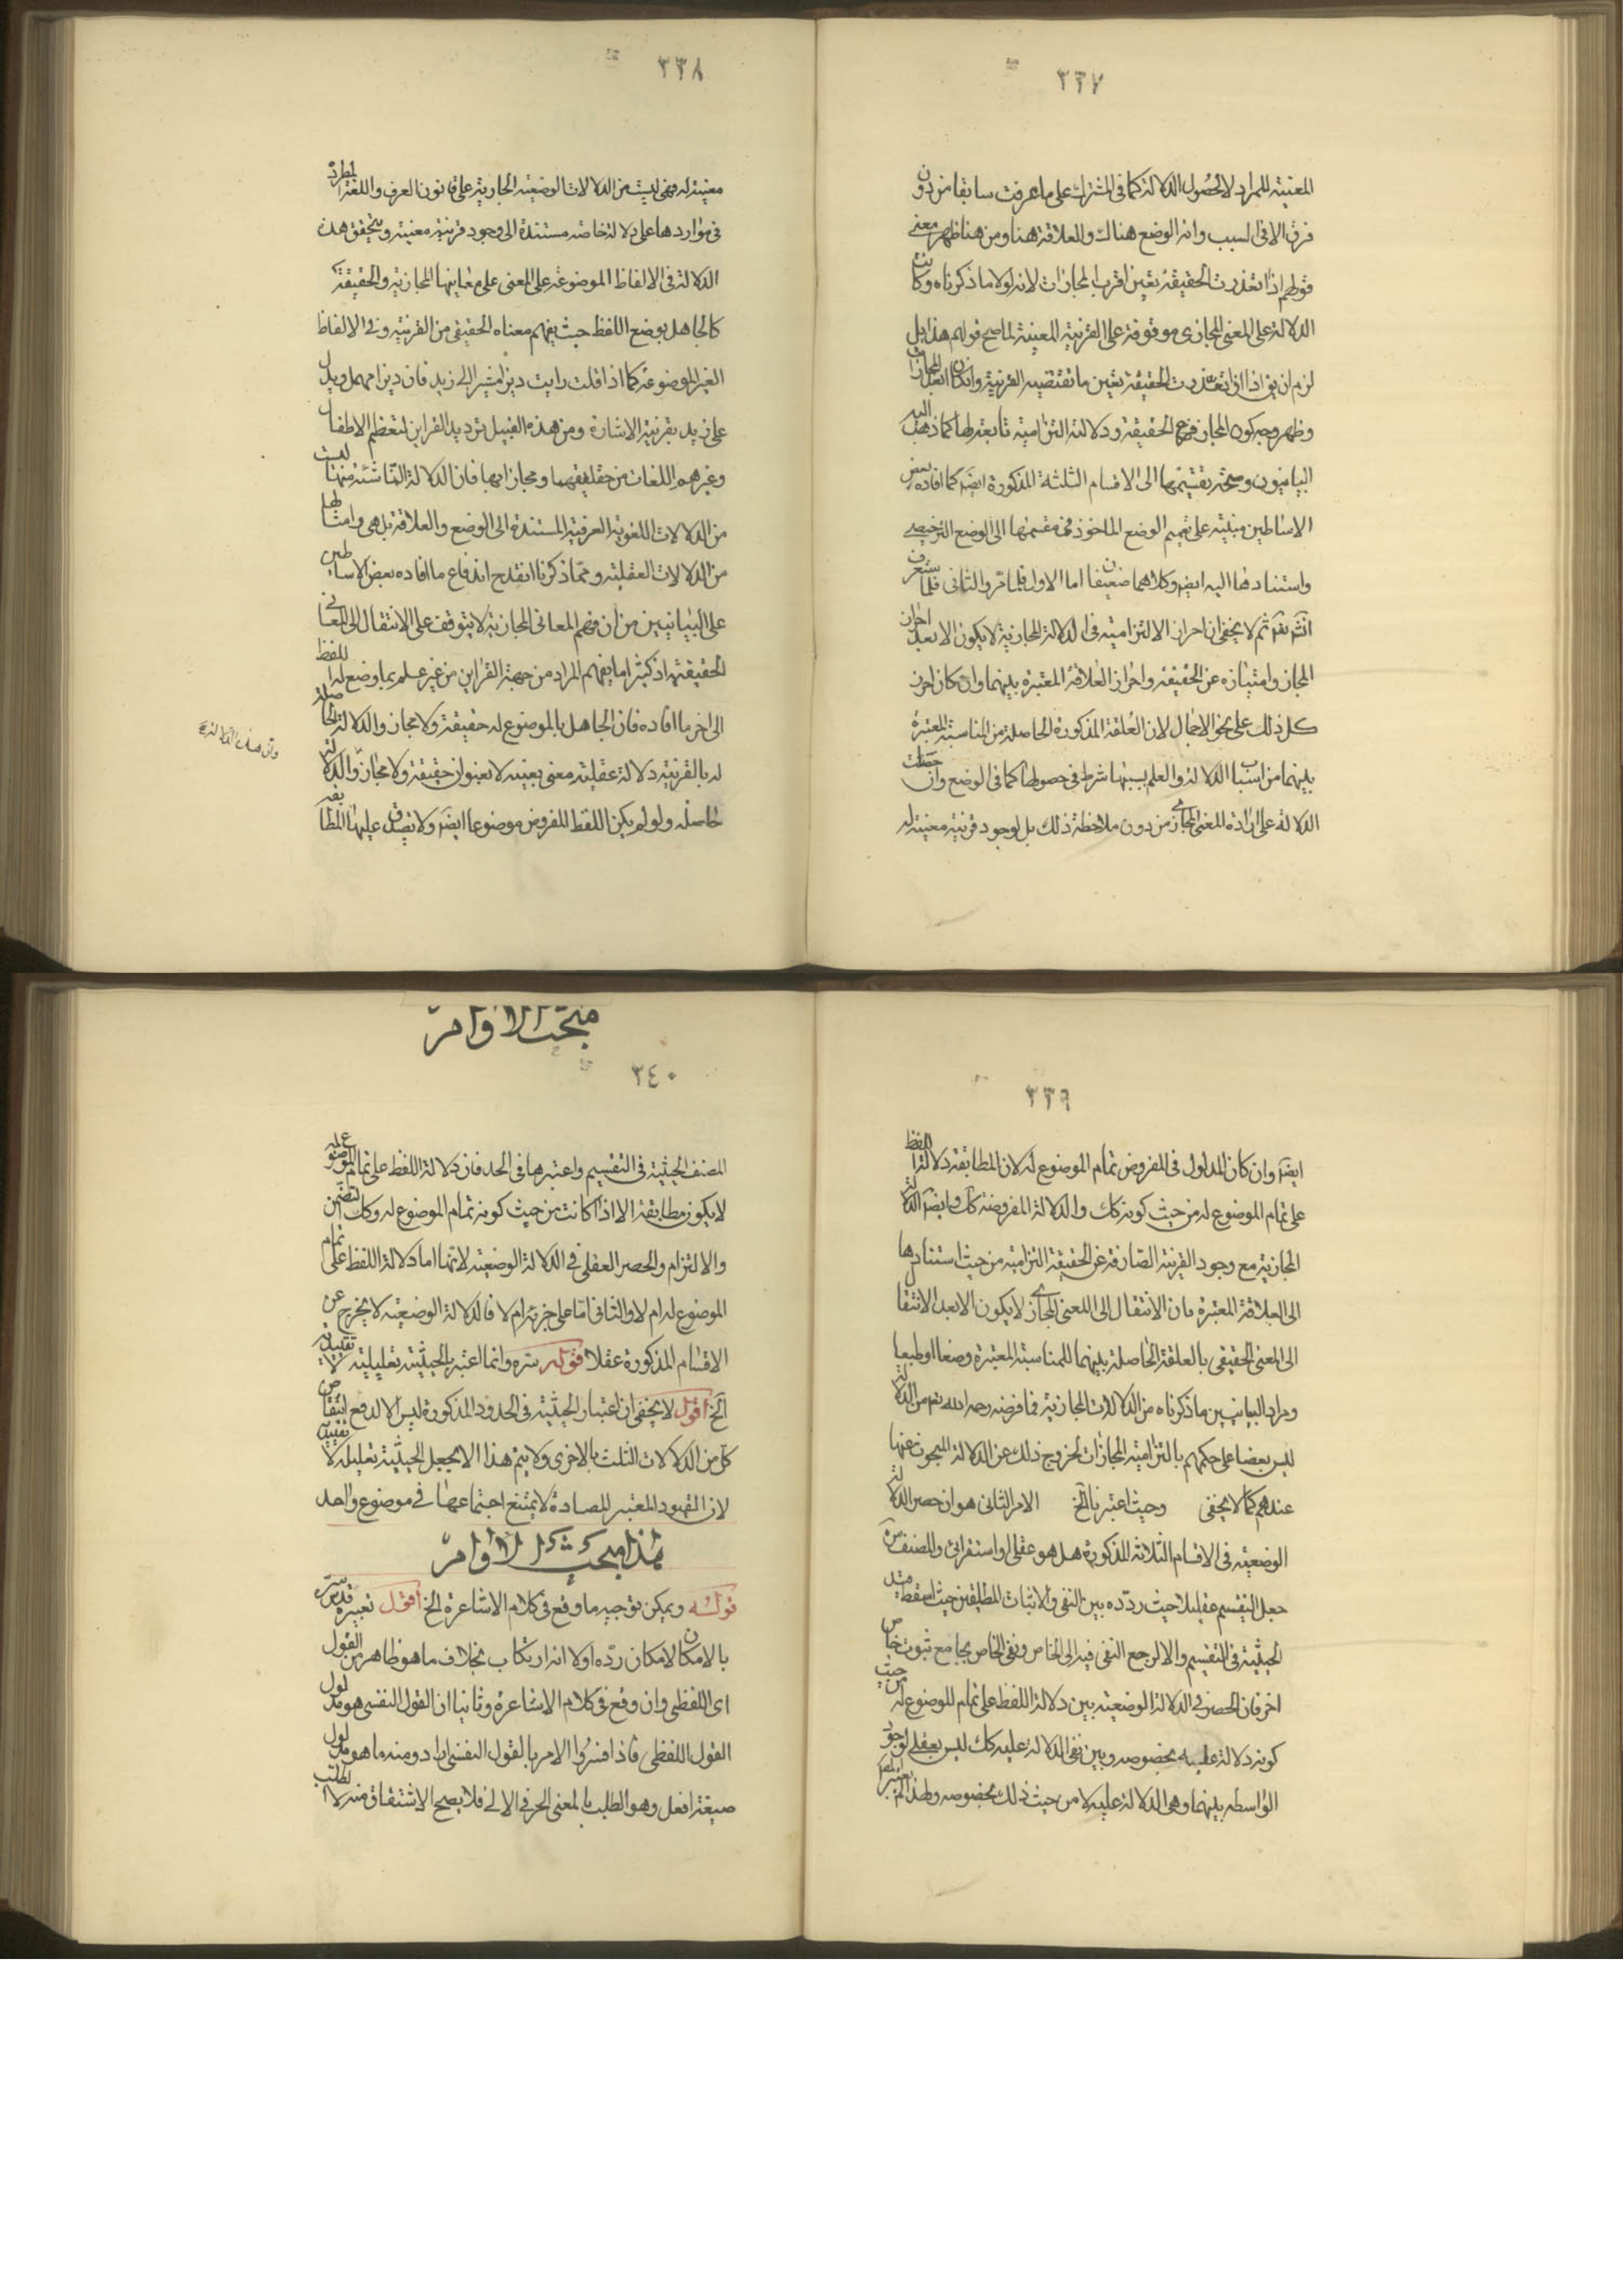 ٣٣٧
المعنية للمراد لا لحصول الدلالة كما فى المشترك على ما عرفت سابقا من دون
فرق الا فى السبب وانه الوضع هناك والعلاقة هنا ومن هنا ظهر معنى
قولهم اذا تعذرت الحقيقة تعين اقرب المجازات لانه لولا ما ذكرناه وكانت
الدلالة على المعنى المجازى موقوفة على القرينة المعينة لما صح قولهم هذا بل
لزم ان يق اذا تعذرت الحقيقة تعين ما تقتضيه القرينة وان كان ابعد المجازات
وظهر وجه كون المجاز فرع الحقيقة ودلالته التزامية تابعة لها كما ذهب اليه
البيانيون وصحة تقسيمها الى الاقسام الثلثة المذكورة ايضا كما افاده بعض
الاساطين مبنية على تعميم الوضع الماخوذ فى مقسمها الى الوضع الترخيصى
واستنادها اليه ايضا وكلاهما ضعيفان اما الاول فلما مر والثانى فلما ستعرف
انشه تع ثم لا يخفى ان احراز الالتزامية فى الدلالة المجازية لا يكون الا بعد احراز
المجاز وامتيازه عن الحقيقة واحراز العلاقة المعتبرة بينهما وان كان احراز
كل ذلك على نحو الاجمال لان العلقة المذكورة الحاصلة من المناسبة المعتبرة
بينهما من اسباب الدلالة والعلم بسببها شرط فى حصولها كما فى الوضع وان حصلت
الدلالة على ارادة المعنى المجازى من دون ملاحظة ذلك بل لوجود قرينة معينة له
٣٣٨
معينة له فهى ليست من الدلالات الوضعية الجارية على قانون العرف واللغة المطردة
فى مواردها على دلالة خاصة مستندة الى وجود قرينة معينة ويتحقق هذه
الدلالة فى الالفاظ الموضوعة على المعنى على معانيها المجازية والحقيقة
كالجاهل بوضع اللفظ حيث يفهم معناه الحقيقى من القرينة وفى الالفاظ
الغير الموضوعة كما اذا قلت رايت ديزا مشيرا الى زيد فان ديزا مهمل ويدل
على زيد بقرينة الاشارة ومن هذه القبيل ترديد القراين لتعظم الاطفال
وغيرهم اللغات من حقايقها ومجازاتها فان الدلالة الناشئة منها ليست
من الدلالات اللغوية العرفية المستندة الى الوضع والعلاقة بل هى وامثالها
من الدلالات العقلية ومما ذكرنا انقدح اندفاع ما افاده بعض الاساطين
على البيانيين من ان فهم المعانى المجازية لا يتوقف على الانتقال الى المعانى
الحقيقة اذ كثيرا ما يفهم المراد من جهة القراين من غير علم بما وضع له اللفظ
الى اخر ما افاده فان الجاهل بالموضوع له حقيقة ولا مجاز والدلالة الحاصلة
له بالقرينة دلالة عقلية معنى بعينه لا بعنوان حقيقة ولا مجاز والدلالة
حاصلة ولو لم يكن اللفظ المفروض موضوعا ايضا ولا يصدق عليها المطابقة
وان هذه الدلالة
٣٣٩
ايضا وان كان المدلول فى المفروض تمام الموضوع له لان المطابقة دلالة اللفظ
على تمام الموضوع له من حيث كونه كك والدلالة المفروضة كك وايضا الدلالة
المجازية مع وجود القرينة الصارفة عن الحقيقة التزامية من حيث استنادها
الى العلاقة المعتبرة فان الانتقال الى المعنى المجازى لا يكون الا بعد الانتقال
الى المعنى الحقيقى بالعلقة الحاصلة بينهما للمناسبة المعتبرة وضعا او طبعا
ومراد البيانيين ما ذكرناه من الدلالات المجازية فما فرضه رحمه الله تع من الدلالة
ليس نقضا على حكمهم بالتزامية المجازات لخروج ذلك عن الدلالة المبحوث عنها
عندهم كما لا يخفى وحيث اعتبرنا الخ الامر الثانى هو ان حصر الدلالة
الوضعية فى الاقسام الثلاثة المذكورة هل هو عقلى او استقرائى والمصنف سره
جعل التقسيم عقليا حيث ردّده بين النفى والاثبات المطلقين حيث اسقط قيد
الحيثية فى التقسيم والا لرجع النفى فيه الى الخاص ونفى الخاص يجامع ثبوت خاص
اخر فان الحصر فى الدلالة الوضعية بين دلالة اللفظ على تمام الموضوع له من حيث
كونه دلالة عليه بخصوصه وبين نفى الدلالة عليه كك ليس بعقلى لوجود
الواسطة بينهما وهى الدلالة عليه لا من حيث ذلك بخصوصه ولهذا لم يعتبر المص
مبحث الاوامر
٣٤٠
المصنف الحيثية فى التقسيم واعتبرها فى الحد فان دلالة اللفظ على تمام الموضوع له
لا يكون مطابقة الا اذا كانت من حيث كونه تمام الموضوع له وكك التضمن
والالتزام والحصر العقلى فى الدلالة الوضعية لانها اما دلالة اللفظ على تمام
الموضوع له ام لا والثانى اما على جزئه ام لا فالدلالة الوضعية لا يخرج عن
الاقسام المذكورة عقلا قوله سره وانما اعتبر بالحيثية تعليلية لا تقييدية
الخ اقول لا يخفى ان اعتبار الحيثية فى الحدود المذكورة ليس الا لدفع انتقاض
كل من الدلالات الثلث بالاخرى ولا يتم هذا الا بجعل الحيثية تعليلة لا تقييدية
لان القيود المعتبر المصادة لا يمتنع اجتماعها فى موضوع واحد
هذا مبحث الاوامر
قوله ويمكن توجيه ما وقع فى كلام الاشاعرة الخ اقول تعبيره قدس سره
بالامكان لامكان ردّه اولا انه ارتكاب بخلاف ما هو ظاهر من القول
اى اللفظى وان وقع فى كلام الاشاعرة وثانيا ان القول النفسى هو مدلول
القول اللفظى فاذا فسروا الامر بالقول النفسى ارادو منه ما هو مدلول
صيغة افعل وهو الطلب بالمعنى الحرفى الالى فلا يصح الاشتقاق منه لا الطلب